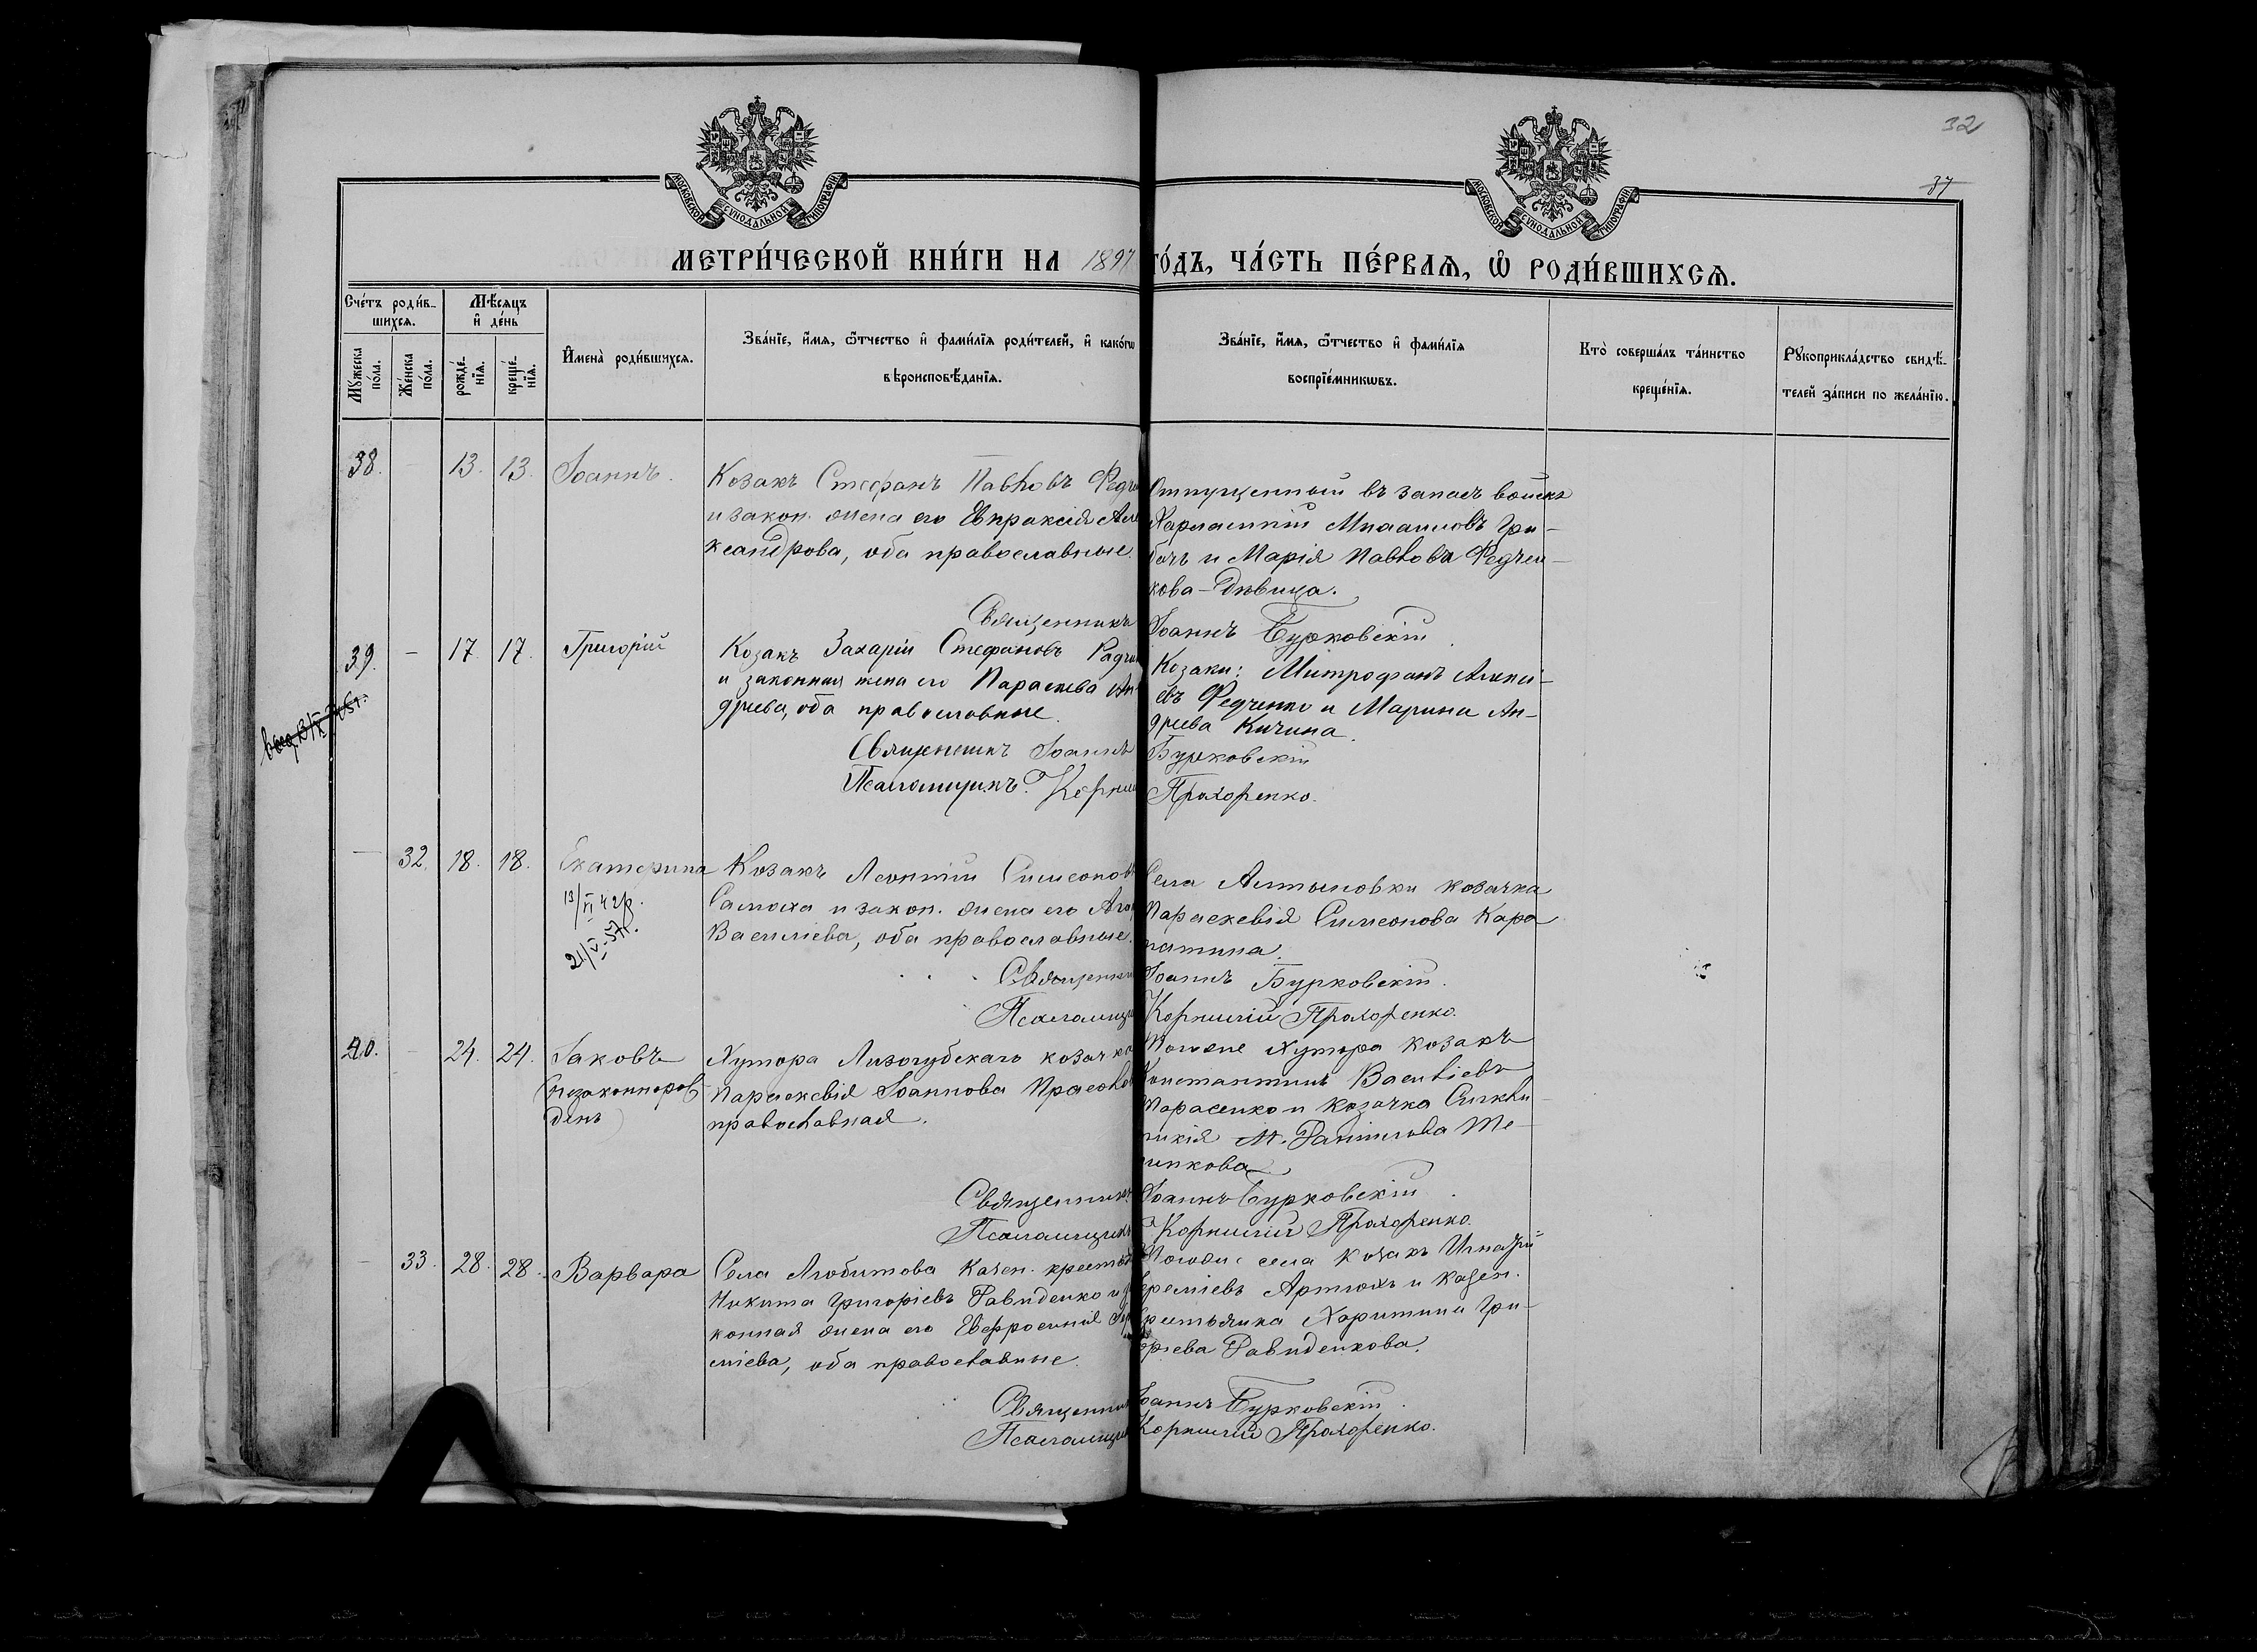 32
37
МОСКОВСКОЙ СѴНОДАЛЬНОЙ ТИПОГРАФІИ
МОСКОВСКОЙ СѴНОДАЛЬНОЙ ТИПОГРАФІИ
МЕТРИ́ЧЕСКОЙ КНИ́ГИ НА 1897 ГО́ДЪ, ЧА́СТЬ ПЕ́РВАЯ, Ѽ РОДИ́ВШИХСЯ.
Сче́тъ роди́в-
шихся.
Мѣ́сяцъ
и де́нь
Мꙋ́жеска по́ла.
Же́нска по́ла.
рожде́-
нїя.
креще́-
нїя.
Имена̀ роди́вшихся.
Зва́нїе, и́мя, ѻ́тчество и фами́лїя роди́телей, и како́гѡ
вѣроисповѣ́данїя.
Зва́нїе, и́мя, ѻ́тчество и фами́лїя
воспрїе́мникѡвъ.
Кто̀ соверша́лъ та́инство
креще́нїя.
Рꙋкоприкла́дство свидѣ́-
телей за́писи по жела́нїю.
38. 13. 13. Іоаннъ.
Козакъ Стефанъ Павловъ
и закон. жена его Евпраксія Але
ксандрова, оба православные.
Отпущенный въ запасъ войскъ
Гри-
бачъ и Марія Павлова Федчен-
кова-Дѣвица.
Священникъ Іоаннъ Бурковскій
39. - 17 17. Григорій
Козакъ Захарій Стефановъ
и законная жена его Параскева Ан
дреева, оба православные.
Козаки: Митрофанъ Алексі-
евъ Федченко и Марина Ан-
дреева Кичина.
Священникъ Іоаннъ Бурковскій
Псаломщикъ Прохоренко.
- 32. 18. 18. Екатерина
Козакъ Леонтій Симеонов
Самоха и закон. жена его
Василіева, оба православные.
Села Алтыновки козачка
Параскевія Симеонова Кара
Священни Іоаннъ Бурковскій.
Псаломщи Корнилій Прохоренко.
40. - 24. 24. Іаковъ
(незаконнорож-
денъ)
Хутора Лизогубскаго козачка
Параскевія Іоаннова
православная.
Тогоже хутора козакъ
Константинъ Василіевъ
Тарасенко и козачка
Священникъ Іоаннъ Бурковскій
Псаломщикъ Корнилій Прохоренко.
- 33. 28. 28. Варвара
Села Любитова казен. крестья
Никита Григоріевъ Давиденко и
конная жена его Евфросинія
еміева, оба православные.
Тогоже села козакъ Игнатій
Ереміевъ Артюхъ и казен.
крестьянка Харитина Гри-
оріева Давиденкова.
Священник Іоаннъ Бурковскій
Псаломщик Корнилій Прохоренко.